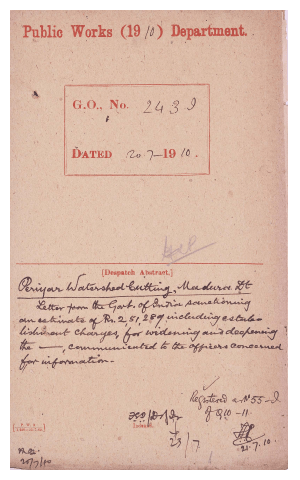 Public Works (1910) Department.
G.O., No. 243 I
DATED 20-7-1910.
[Despatch Abstract.]
Periyar Watershed Cutting, Madura Dt
Letter from the Govt. of India sanctioning
an estimate of Rs. 2,51,289 including estab-
lishment charges, for widening and deepening
the —, communicated to the officers concerned
for information.
Registered as No 55-I
of 1910-11.
23/7
21.7.10.
20/7/10